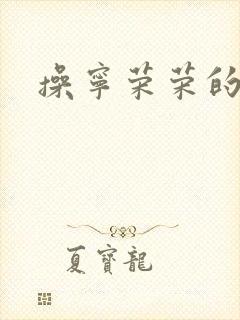 操寧荣荣的
夏寳龍